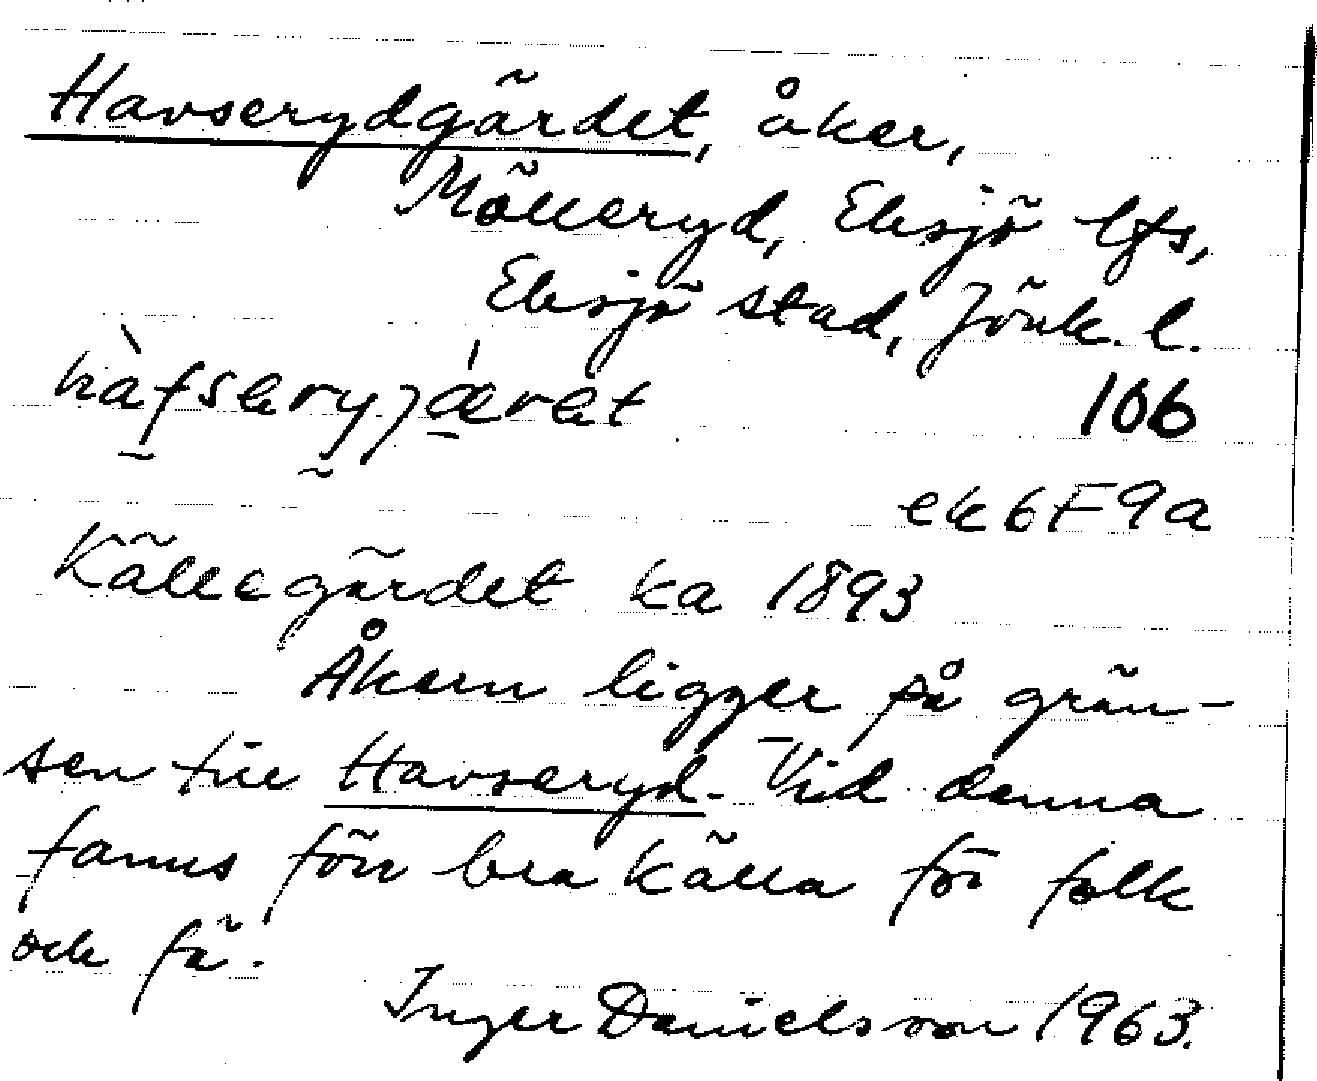 Havserydgärdet, åker,
Mölleryd, Eksjö lfs,
Eksjö stad, Jönk. l.
106
ek 6F9a
Källegärdet ka 1893
Åkern ligger på grän-
sen till Havseryd. Vid denna
fanns förr bra källa för folk
och fä.
Inger Danielsson 1963.